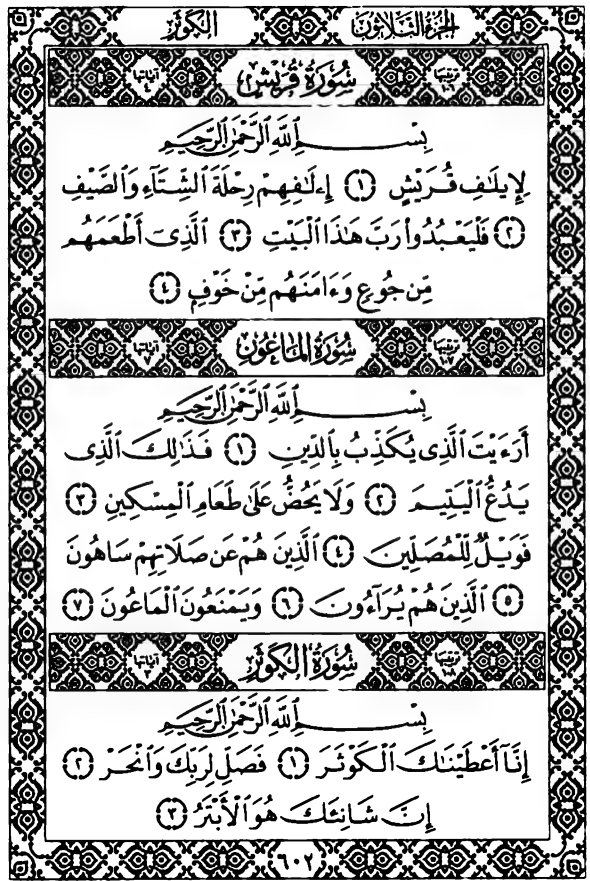 الجزء الثلاثون الكوثر
ترتيبها ١٠٦ سورة قريش آياتها ٤
بِسْمِ ٱللَّهِ ٱلرَّحْمَٰنِ ٱلرَّحِيمِ
لِإِيلَٰفِ قُرَيْشٍ ﴿١﴾ إِۦلَٰفِهِمْ رِحْلَةَ ٱلشِّتَآءِ وَٱلصَّيْفِ
﴿٢﴾ فَلْيَعْبُدُوا۟ رَبَّ هَٰذَا ٱلْبَيْتِ ﴿٣﴾ ٱلَّذِىٓ أَطْعَمَهُم
مِّن جُوعٍ وَءَامَنَهُم مِّنْ خَوْفٍۭ ﴿٤﴾
ترتيبها ١٠٧ سورة الماعون آياتها ٧
بِسْمِ ٱللَّهِ ٱلرَّحْمَٰنِ ٱلرَّحِيمِ
أَرَءَيْتَ ٱلَّذِى يُكَذِّبُ بِٱلدِّينِ ﴿١﴾ فَذَٰلِكَ ٱلَّذِى
يَدُعُّ ٱلْيَتِيمَ ﴿٢﴾ وَلَا يَحُضُّ عَلَىٰ طَعَامِ ٱلْمِسْكِينِ ﴿٣﴾
فَوَيْلٌ لِّلْمُصَلِّينَ ﴿٤﴾ ٱلَّذِينَ هُمْ عَن صَلَاتِهِمْ سَاهُونَ
﴿٥﴾ ٱلَّذِينَ هُمْ يُرَآءُونَ ﴿٦﴾ وَيَمْنَعُونَ ٱلْمَاعُونَ ﴿٧﴾
ترتيبها ١٠٨ سورة الكوثر آياتها ٣
بِسْمِ ٱللَّهِ ٱلرَّحْمَٰنِ ٱلرَّحِيمِ
إِنَّآ أَعْطَيْنَٰكَ ٱلْكَوْثَرَ ﴿١﴾ فَصَلِّ لِرَبِّكَ وَٱنْحَرْ ﴿٢﴾
إِنَّ شَانِئَكَ هُوَ ٱلْأَبْتَرُ ﴿٣﴾
٦٠٢